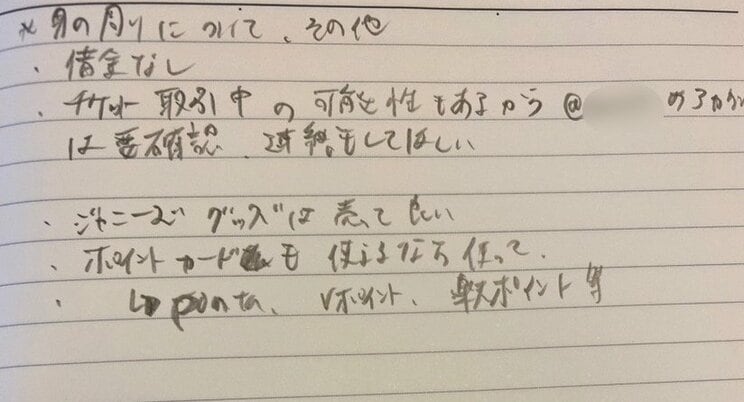 * 身の周りについて、その他
・借金なし
・チケット取引中の可能性もあるから@ のアカウント
は要確認、連絡もしてほしい
・ジャニーズグッズは売って良い
・ポイントカードも使えるなら使って、
・ ponta、Vポイント、楽天ポイント等